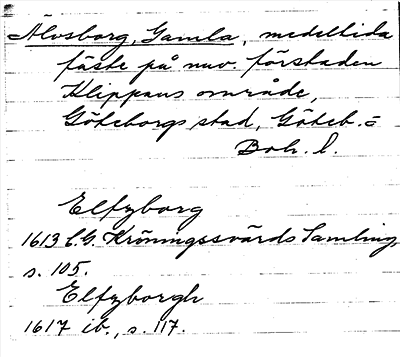 Älvsborg, Gamla, medeltida
fäste på nuv. förstaden
Klippans område,
Göteborgs stad, Göteb.=
Boh. l.
Elfzborg
1613 C.G. Kröningssvärds Samling,
s. 105.
Elfzborgh
1617 ib., s. 117.